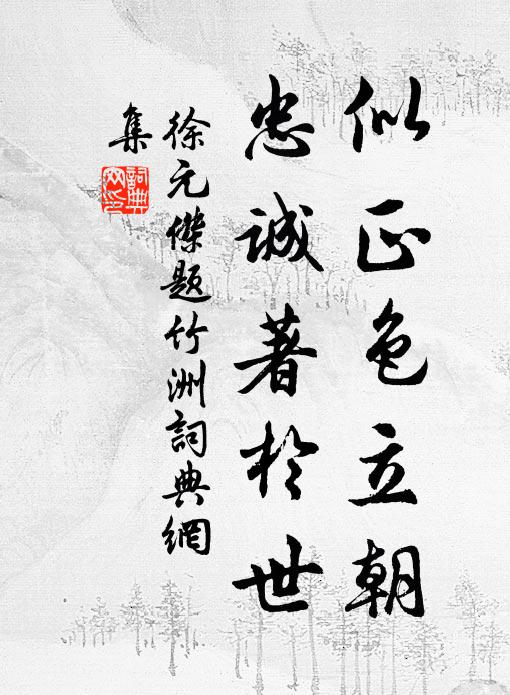 似正色立朝
忠誠著於世
徐元傑題竹洲詞典網
集
詞典网印